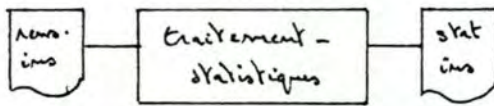 rens.
ins
traitement-
statistiques
stat
ins